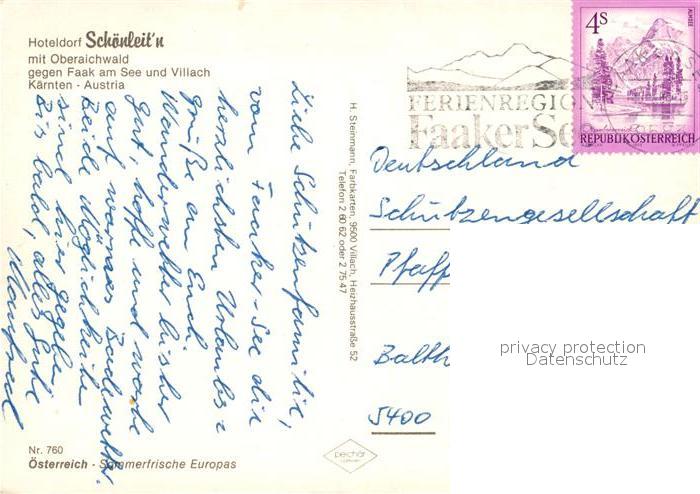 Hoteldorf Schönleit'n
mit Oberaichwald
gegen Faak am See und Villach
Kärnten - Austria
Liebe Schützenfamilie,
vom Faaker-See die
herzlichsten Urlaubs-
grüße an Euch.
Wanderwetter bisher
gut, hoffe und warte
auf warmes Badewetter.
Beide Möglichkeiten
sind hier gegeben
Bis bald, alles Gute
Manfred
Nr. 760
Österreich - Sommerfrische Europas
H. Steinmann, Farbkarten, 9500 Villach, Heizhausstraße 52
Telefon 2 60 62 oder 2 75 47
pechar
4s
REPUBLIK ÖSTERREICH
FERIENREGION
Faaker See
Deutschland
Schützengesellschaft
Pfaff
Balth
5400
privacy protection
Datenschutz